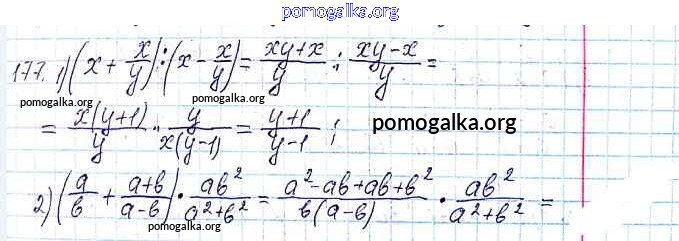 pomogalka.org
177. 1) (x + x/y) : (x - x/y) = xy+x/y : xy-x/y =
pomogalka.org pomogalka.org
= x(y+1)/y · y/x(y-1) = y+1/y-1 ; pomogalka.org
2) (a/b + a+b/a-b) · ab²/a²+b² = a²-ab+ab+b²/b(a-b) · ab²/a²+b² =
pomogalka.org